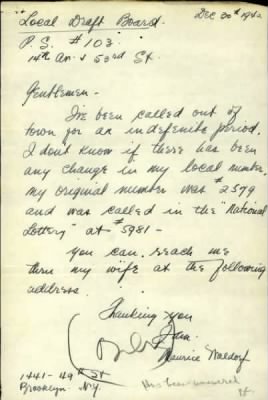 Local Draft Board.
Dec 30th 1940
P.S. #103.
14th Av. & 53rd St.
Gentlemen -
I've been called out of
town for an indefenite period.
I don't know if there has been
any change in my local number.
my original number was #2579
and was called in the "National
Lottery" at #5981 -
you can reach me
thru my wife at the following
address
Thanking you
I am
Maurice Waldorf
1441-49th St
Brooklyn. N.Y.
Has been answered